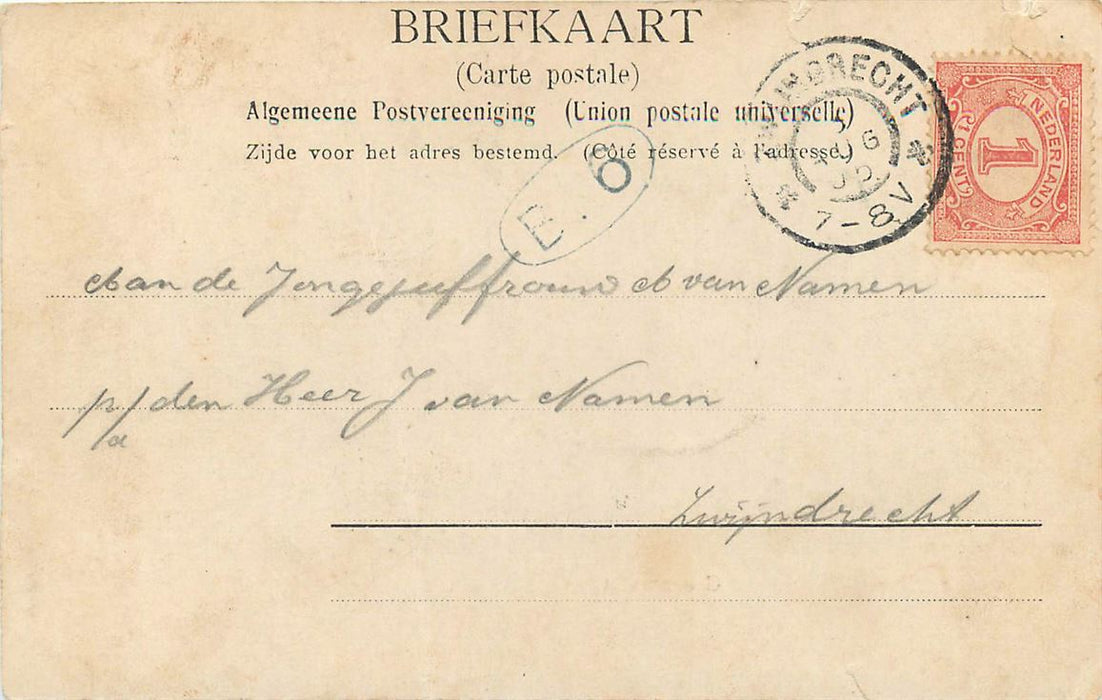 BRIEFKAART
(Carte postale)
Algemeene Postvereeniging (Union postale universelle)
Zijde voor het adres bestemd. (Côté réservé à l'adresse.)
ZWIJNDRECHT
7-8V
NEDERLAND
1
CENT
B. 6
Aan de Jongejuffrouw A van Namen
p/a den Heer J van Namen
Zwijndrecht